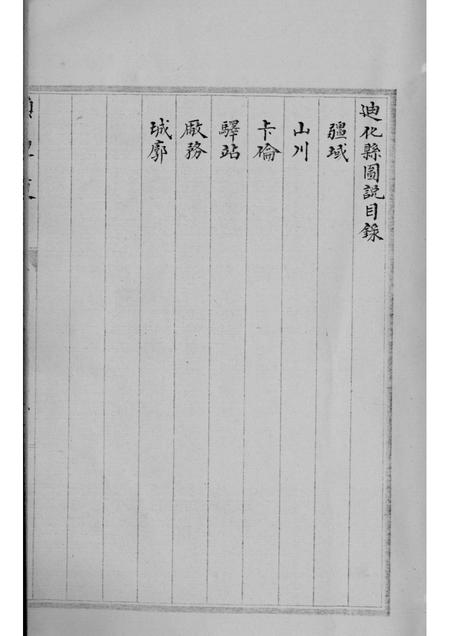 迪化縣圖説目錄
疆域
山川
卡倫
驛站
厰務
城廓